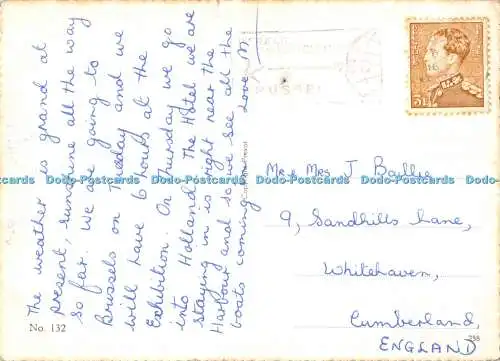 The weather is grand at
present, sunshine all the way
so far. We are going to
Brussels on Tuesday and we
will have 6 hours at the
Exhibition. On Thursday we go
into Holland. The Hotel we are
staying in is right near the
Harbour and so we see all the
boats coming. Love M
No. 132
Mr & Mrs J Baillie
9, Sandhills Lane,
Whitehaven,
Cumberland,
ENGLAND
Dodo-Postcards Dodo-Postcards Dodo-Postcards Dodo-Postcards